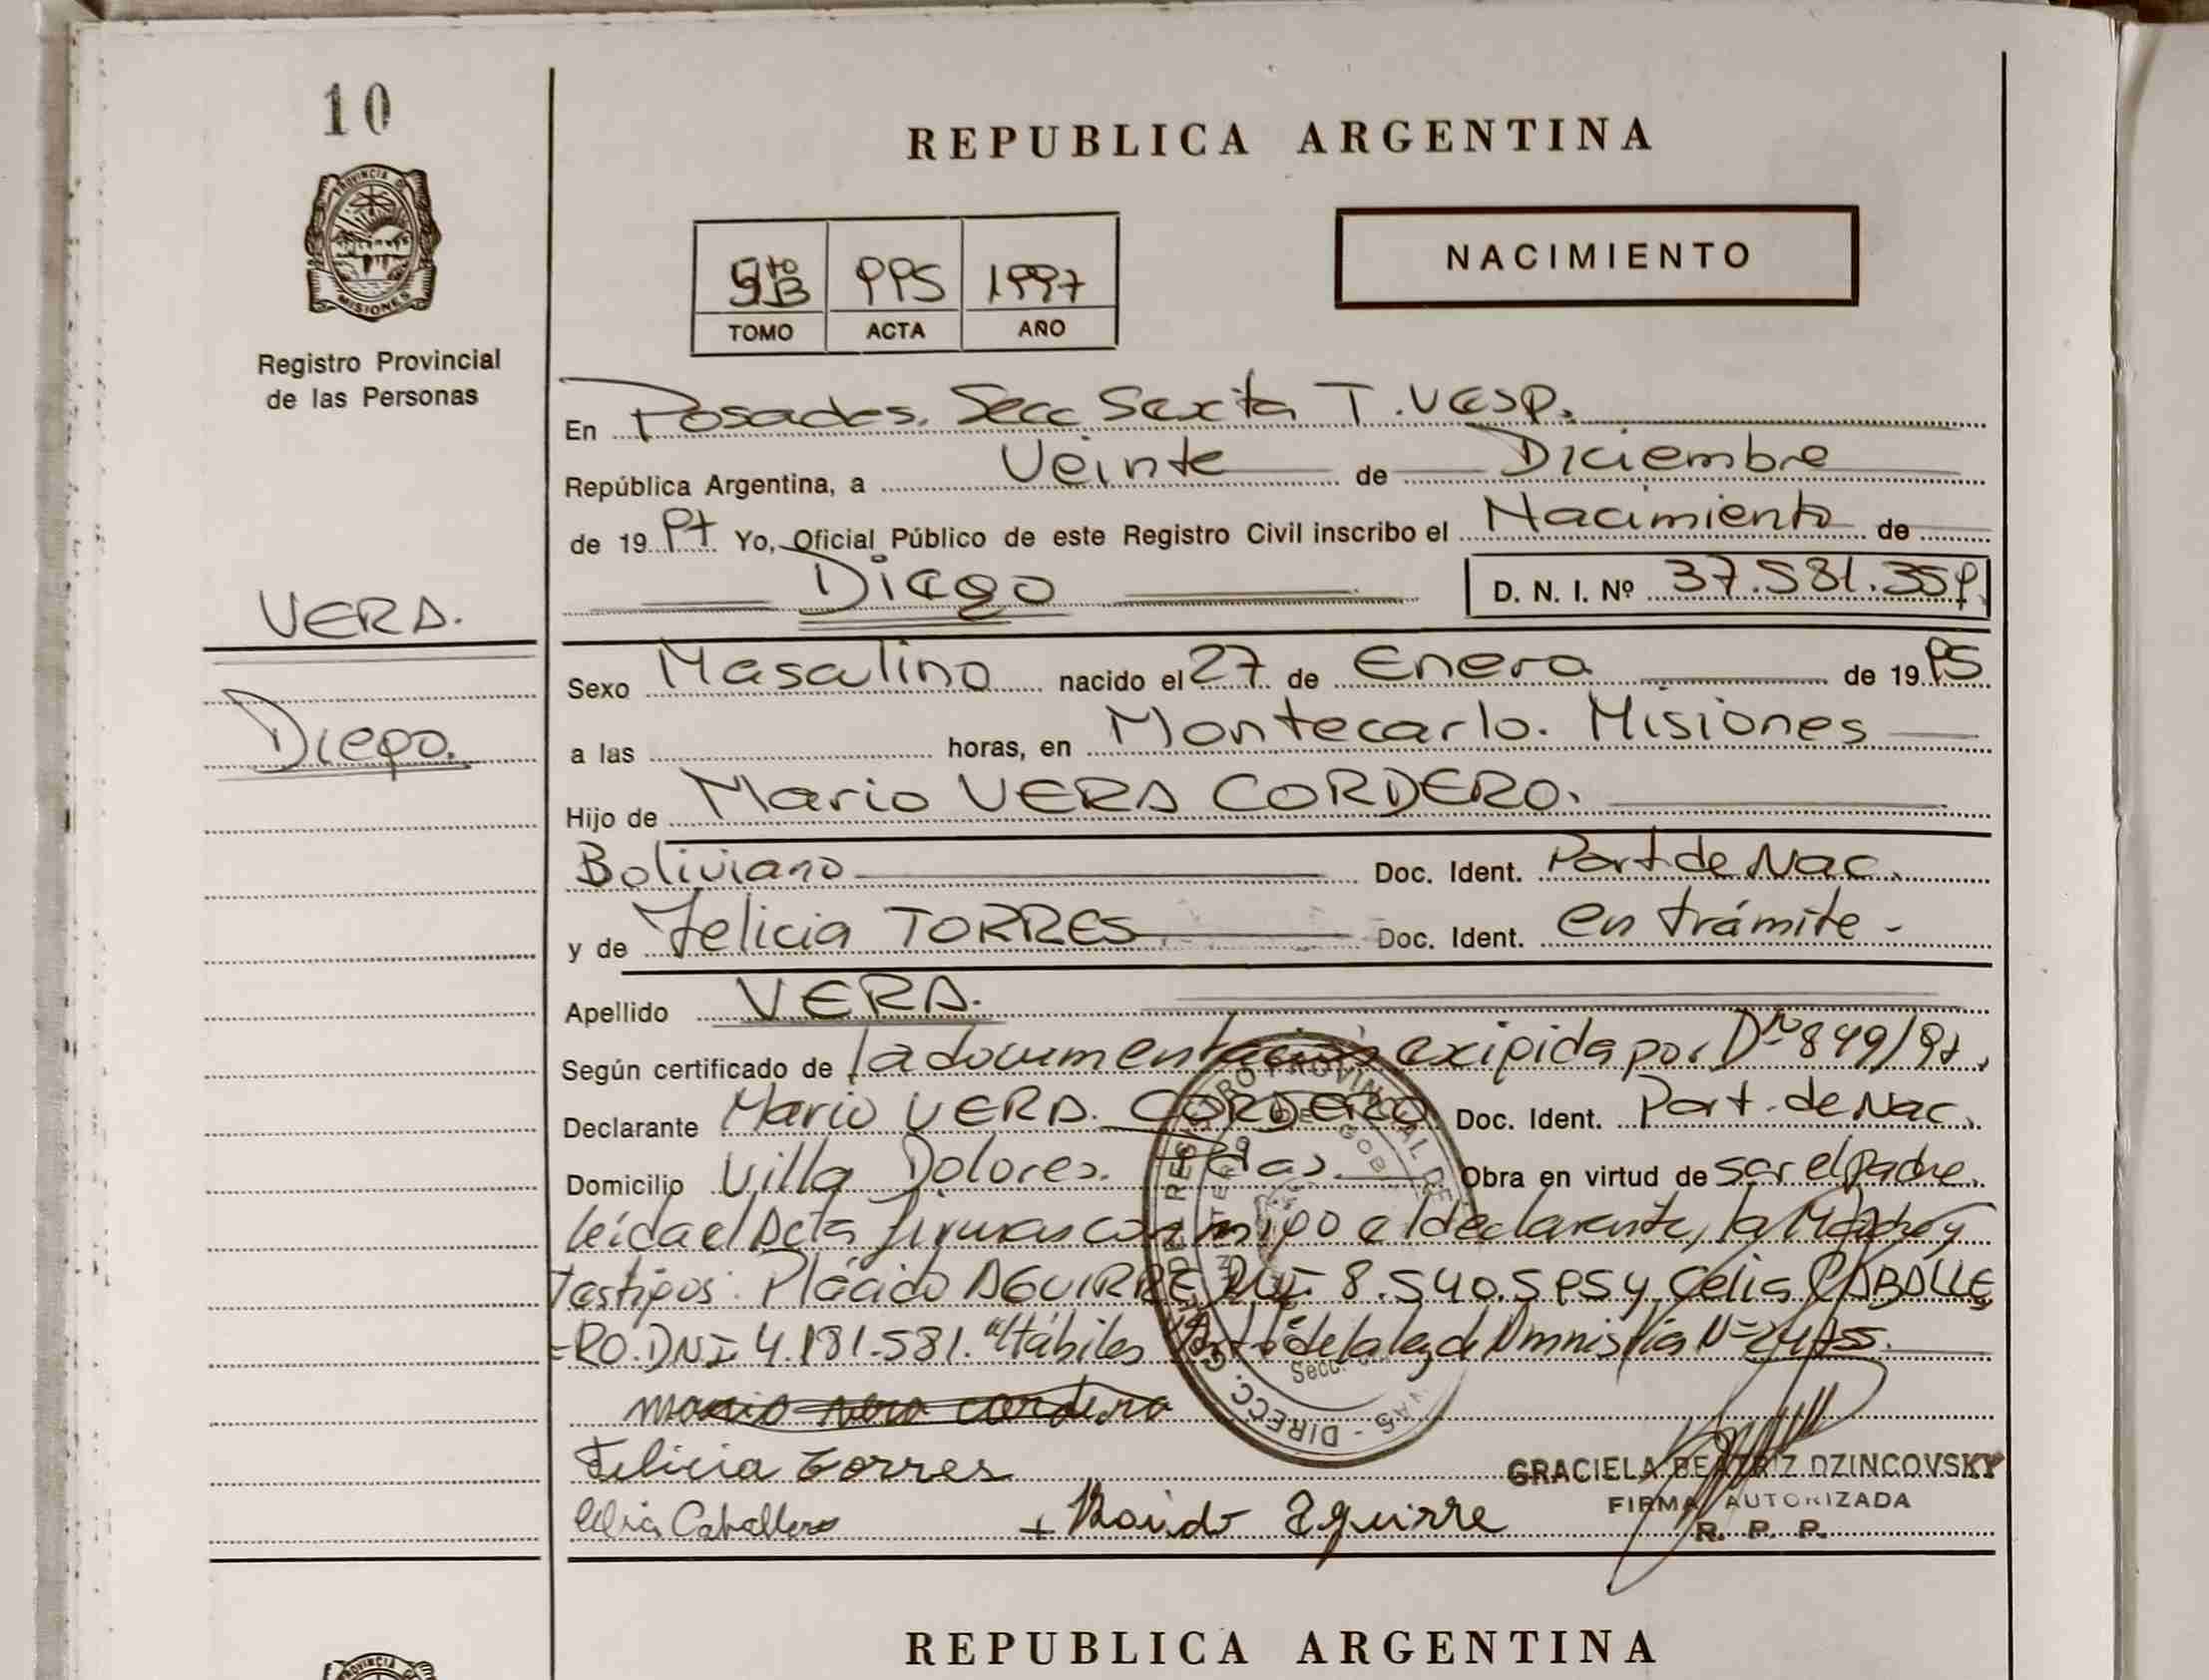 10
REPUBLICA ARGENTINA
PROVINCIA DE
MISIONES
Registro Provincial
de las Personas
995 1997
TOMO ACTA AÑO
NACIMIENTO
En Posadas. Secc Sexta T. Vesp.
República Argentina, a Veinte de Diciembre
de 19 97 Yo, Oficial Público de este Registro Civil inscribo el Nacimiento de
Diego D. N. I. Nº 37.581.359
VERA.
Diego.
Sexo Masculino nacido el 27 de Enero de 19 95
a las horas, en Montecarlo. Misiones
Hijo de Mario VERA CORDERO.
Boliviano Doc. Ident. Part de Nac.
y de Felicia TORRES Doc. Ident. en trámite -
Apellido VERA.
Según certificado de la documentación exigida por D Nº 849/97.
Declarante Mario VERA. CORDERO Doc. Ident. Part. de Nac.
Domicilio Villa Dolores. Pdas. Obra en virtud de ser el padre.
leída el Acta firman conmigo el declarante, la Madre y
testigos: Plácido AGUIRRE DNI 8.540.595 y Celia CABALLE
=RO. DNI 4.181.581. Hábiles de la ley de Amnistía
mario vera cordero
Felicia torres
Celia Caballero Aguirre
GRACIELA BEATRIZ DZINCOVSKY
FIRMA AUTORIZADA
R. P. P.
REPUBLICA ARGENTINA